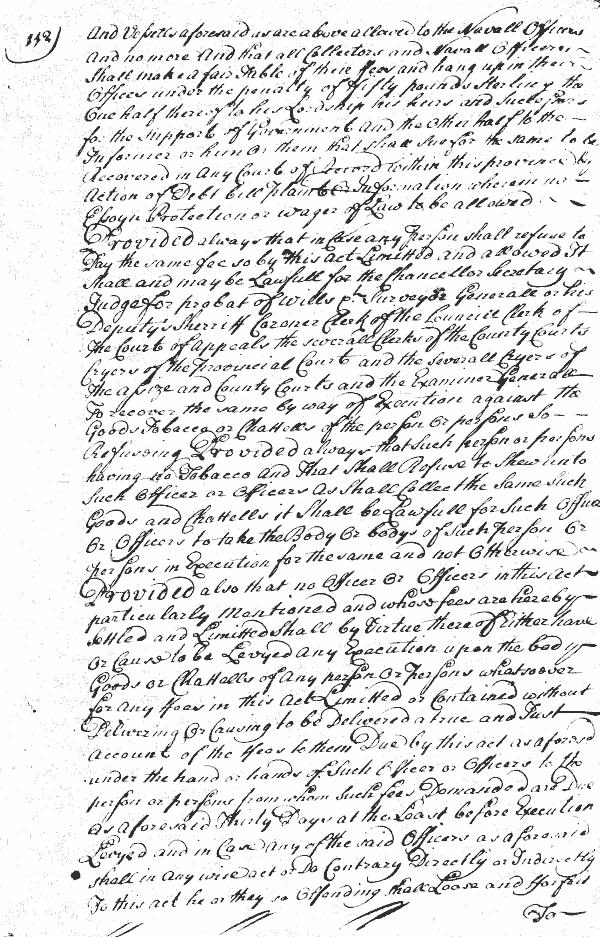 142)
And Vessells aforesaid as are above allowed to the Navall Officers
And no more And that all Collectors and Navall Officers
Shall make a fair Table of their ffees and hang up in their
Offices under the penalty of fifty pounds Sterling the
One half thereof to his Lordship his heirs and Successors
for the Support of Government And the Other half to the
Informer or him Or them that shall Sue for the same to be
Recovered in Any Court of Record within this province by
Action of Debt bill plaint Or Information wherein no
Essoyn Protection or wager of Law to be allowed
Provided always that in Case any Person shall refuse to
Pay the same fee so by this Act Limitted and allowed It
Shall and may be Lawfull for the Chancellor Secretary
Judge for probat of wills Surveyor Generall or his
Deputys Sherriff Coroner Clerk of the Councill Clerk of
The Court of Appeals the severall Clerks of the County Courts
Cryers of the Provincial Court and the severall Cryers of
The Asize and County Courts and the Examiner Generall
To recover the same by way of Execution against the
Goods Tobacco or Chattells of the person Or persons So
Refuseing Provided always that Such person or persons
having no Tobacco and That Shall Refuse to Shew unto
Such Officer or Officers As Shall Collect the same Such
Goods and Chattells it Shall be Lawfull for Such Officer
Or Officers to take the Body Or bodys of Such person Or
persons in Execution for the same and not Otherwise
Provided also that no Officer Or Officers in this Act
particularly Mentioned and whose fees are hereby
settled and Limitted shall by Virtue thereof Either have
Or Cause to be Levyed Any Execution upon the body
Goods or Chattells of Any person Or Persons whatsoever
for Any ffees in this Act Limitted or Contained without
Delivering Or Causing to be Delivered a true and Just
Account of the ffees to them Due by this act as aforesd
under the hand or hands of Such Officer or Officers to the
person or persons from whom Such fees Demanded are Due
as aforesaid Thirty Days at the Least before Execution
Levyed and in Case Any of the said Officers as aforesaid
shall in Any wise act or Do Contrary Directly or Indirectly
To this act he or they so Offending shall Loose and fforfeit
To